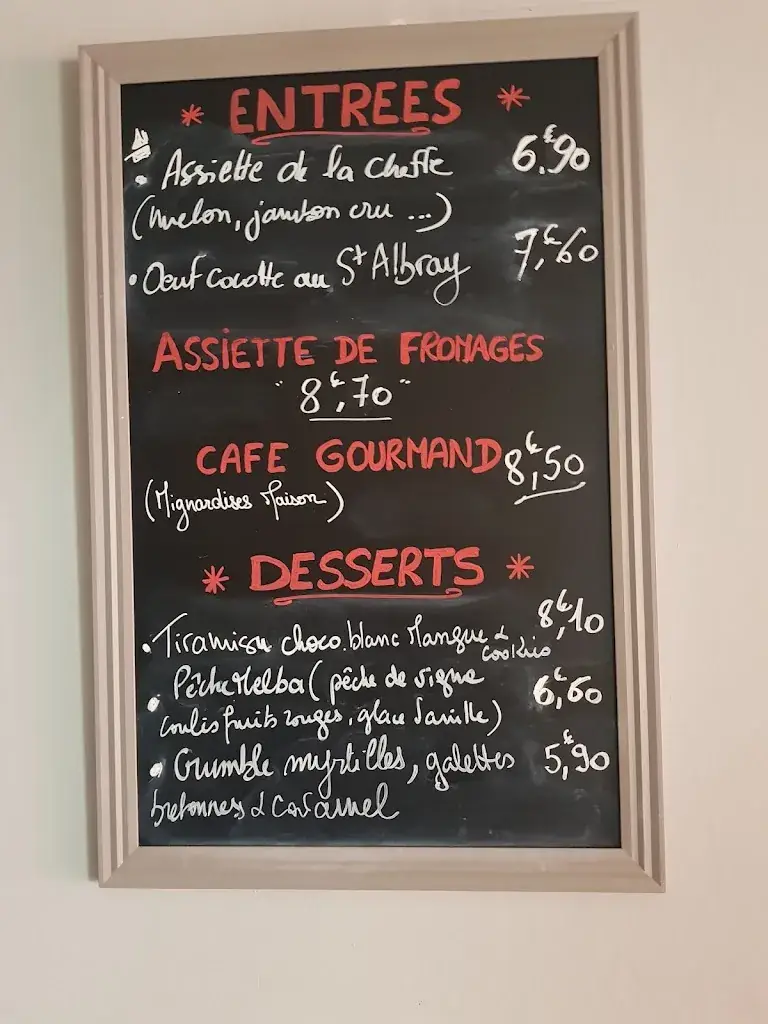 * ENTREES *
• Assiette de la Cheffe 6,€90
(melon, jambon cru ...)
• Oeuf cocotte au St Albray 7,€60
ASSIETTE DE FROMAGES
" 8€,70 "
CAFE GOURMAND 8€,50
(Mignardises Maison)
* DESSERTS *
• Tiramisu choco.blanc Mangue & cookies 8€,10
• Pêche Melba (pêche de vigne 6€,60
coulis fruits rouges, glace Vanille)
• Crumble myrtilles, galettes 5,€90
bretonnes & caramel